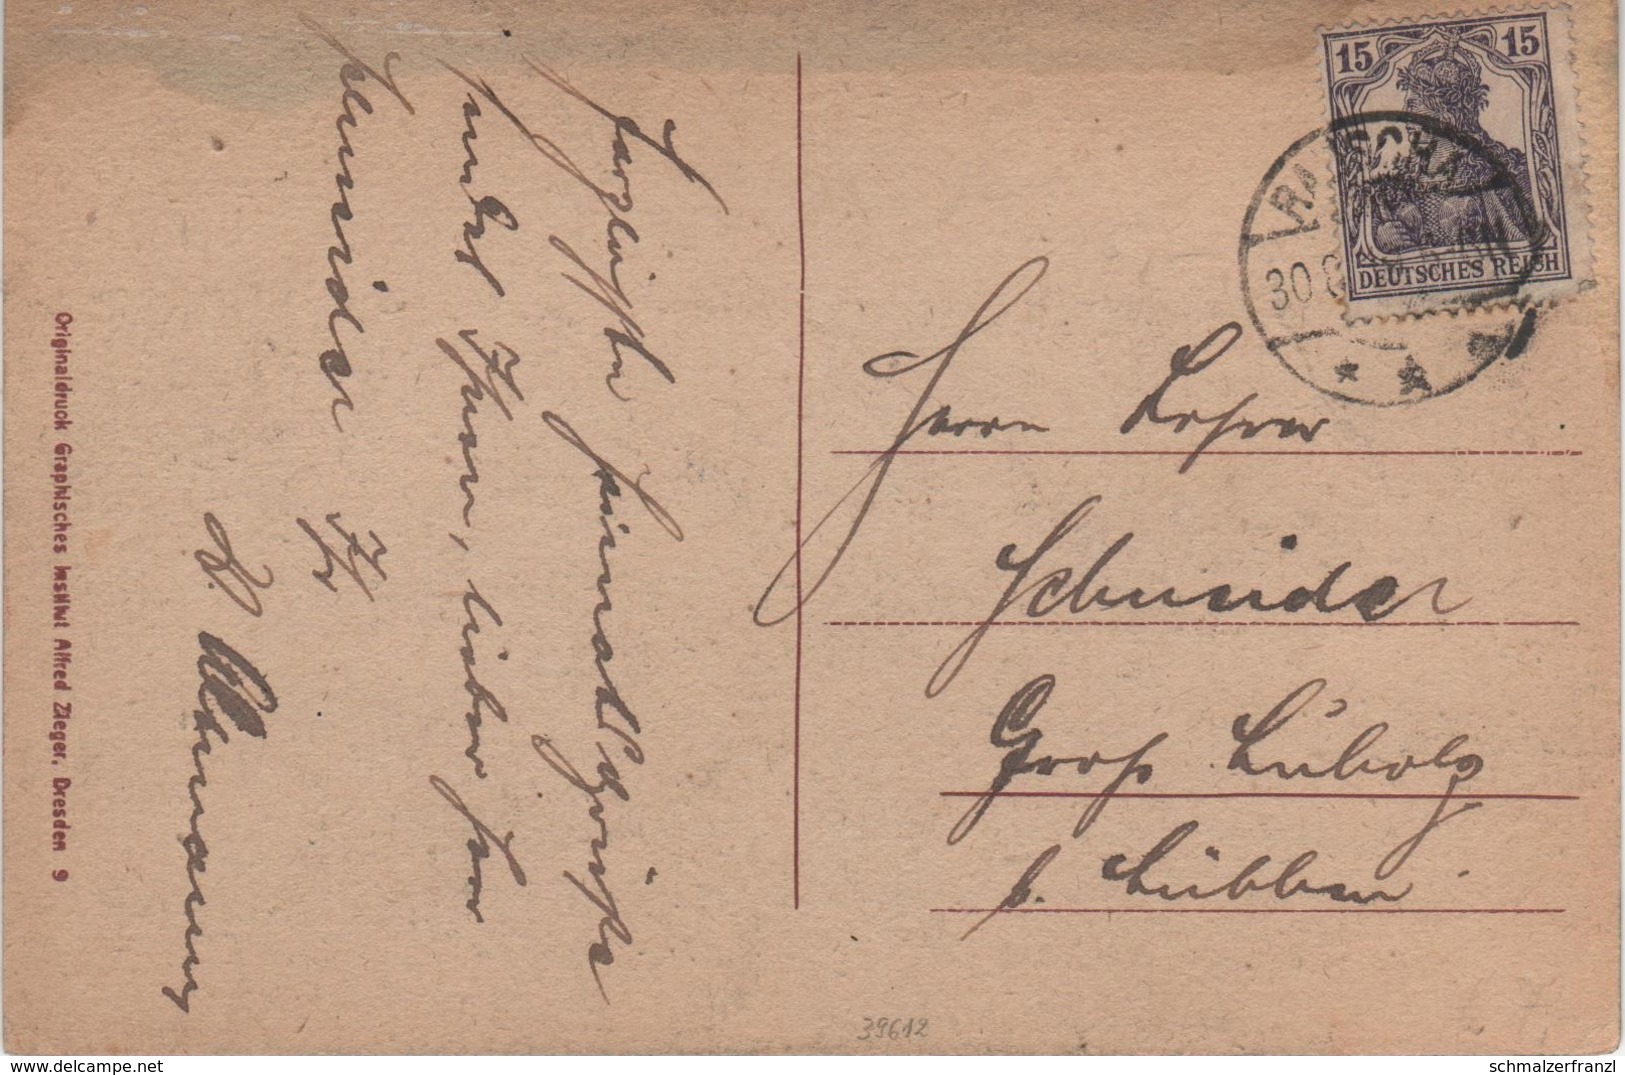 Herzlichste Heimatsgrüße
sendet Ihnen, lieber Herr
Schneider Ihr
Originaldruck Graphisches Institut Alfred Zieger, Dresden 9
15 15
DEUTSCHES REICH
RAUSCHA
30 8
Herrn Lehrer
Schneider
Gross Lubolz
b. Lübben
39612
www.delcampe.net
schmalzerfranzl